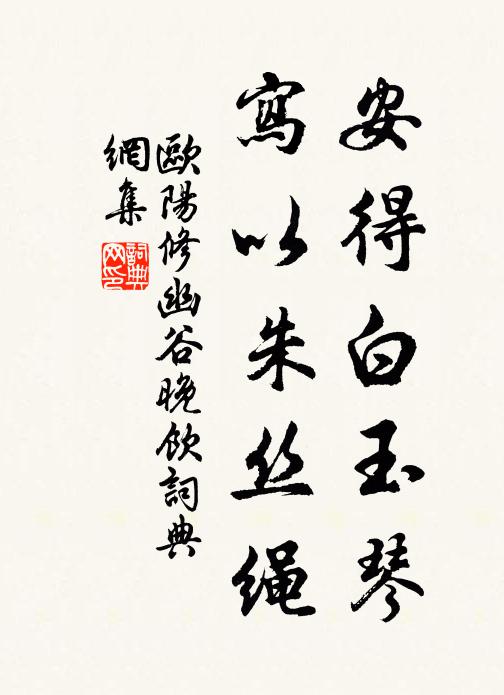 安得白玉琴
寫以朱丝绳
歐陽修幽谷晚飲詞典
網集
詞典
网印